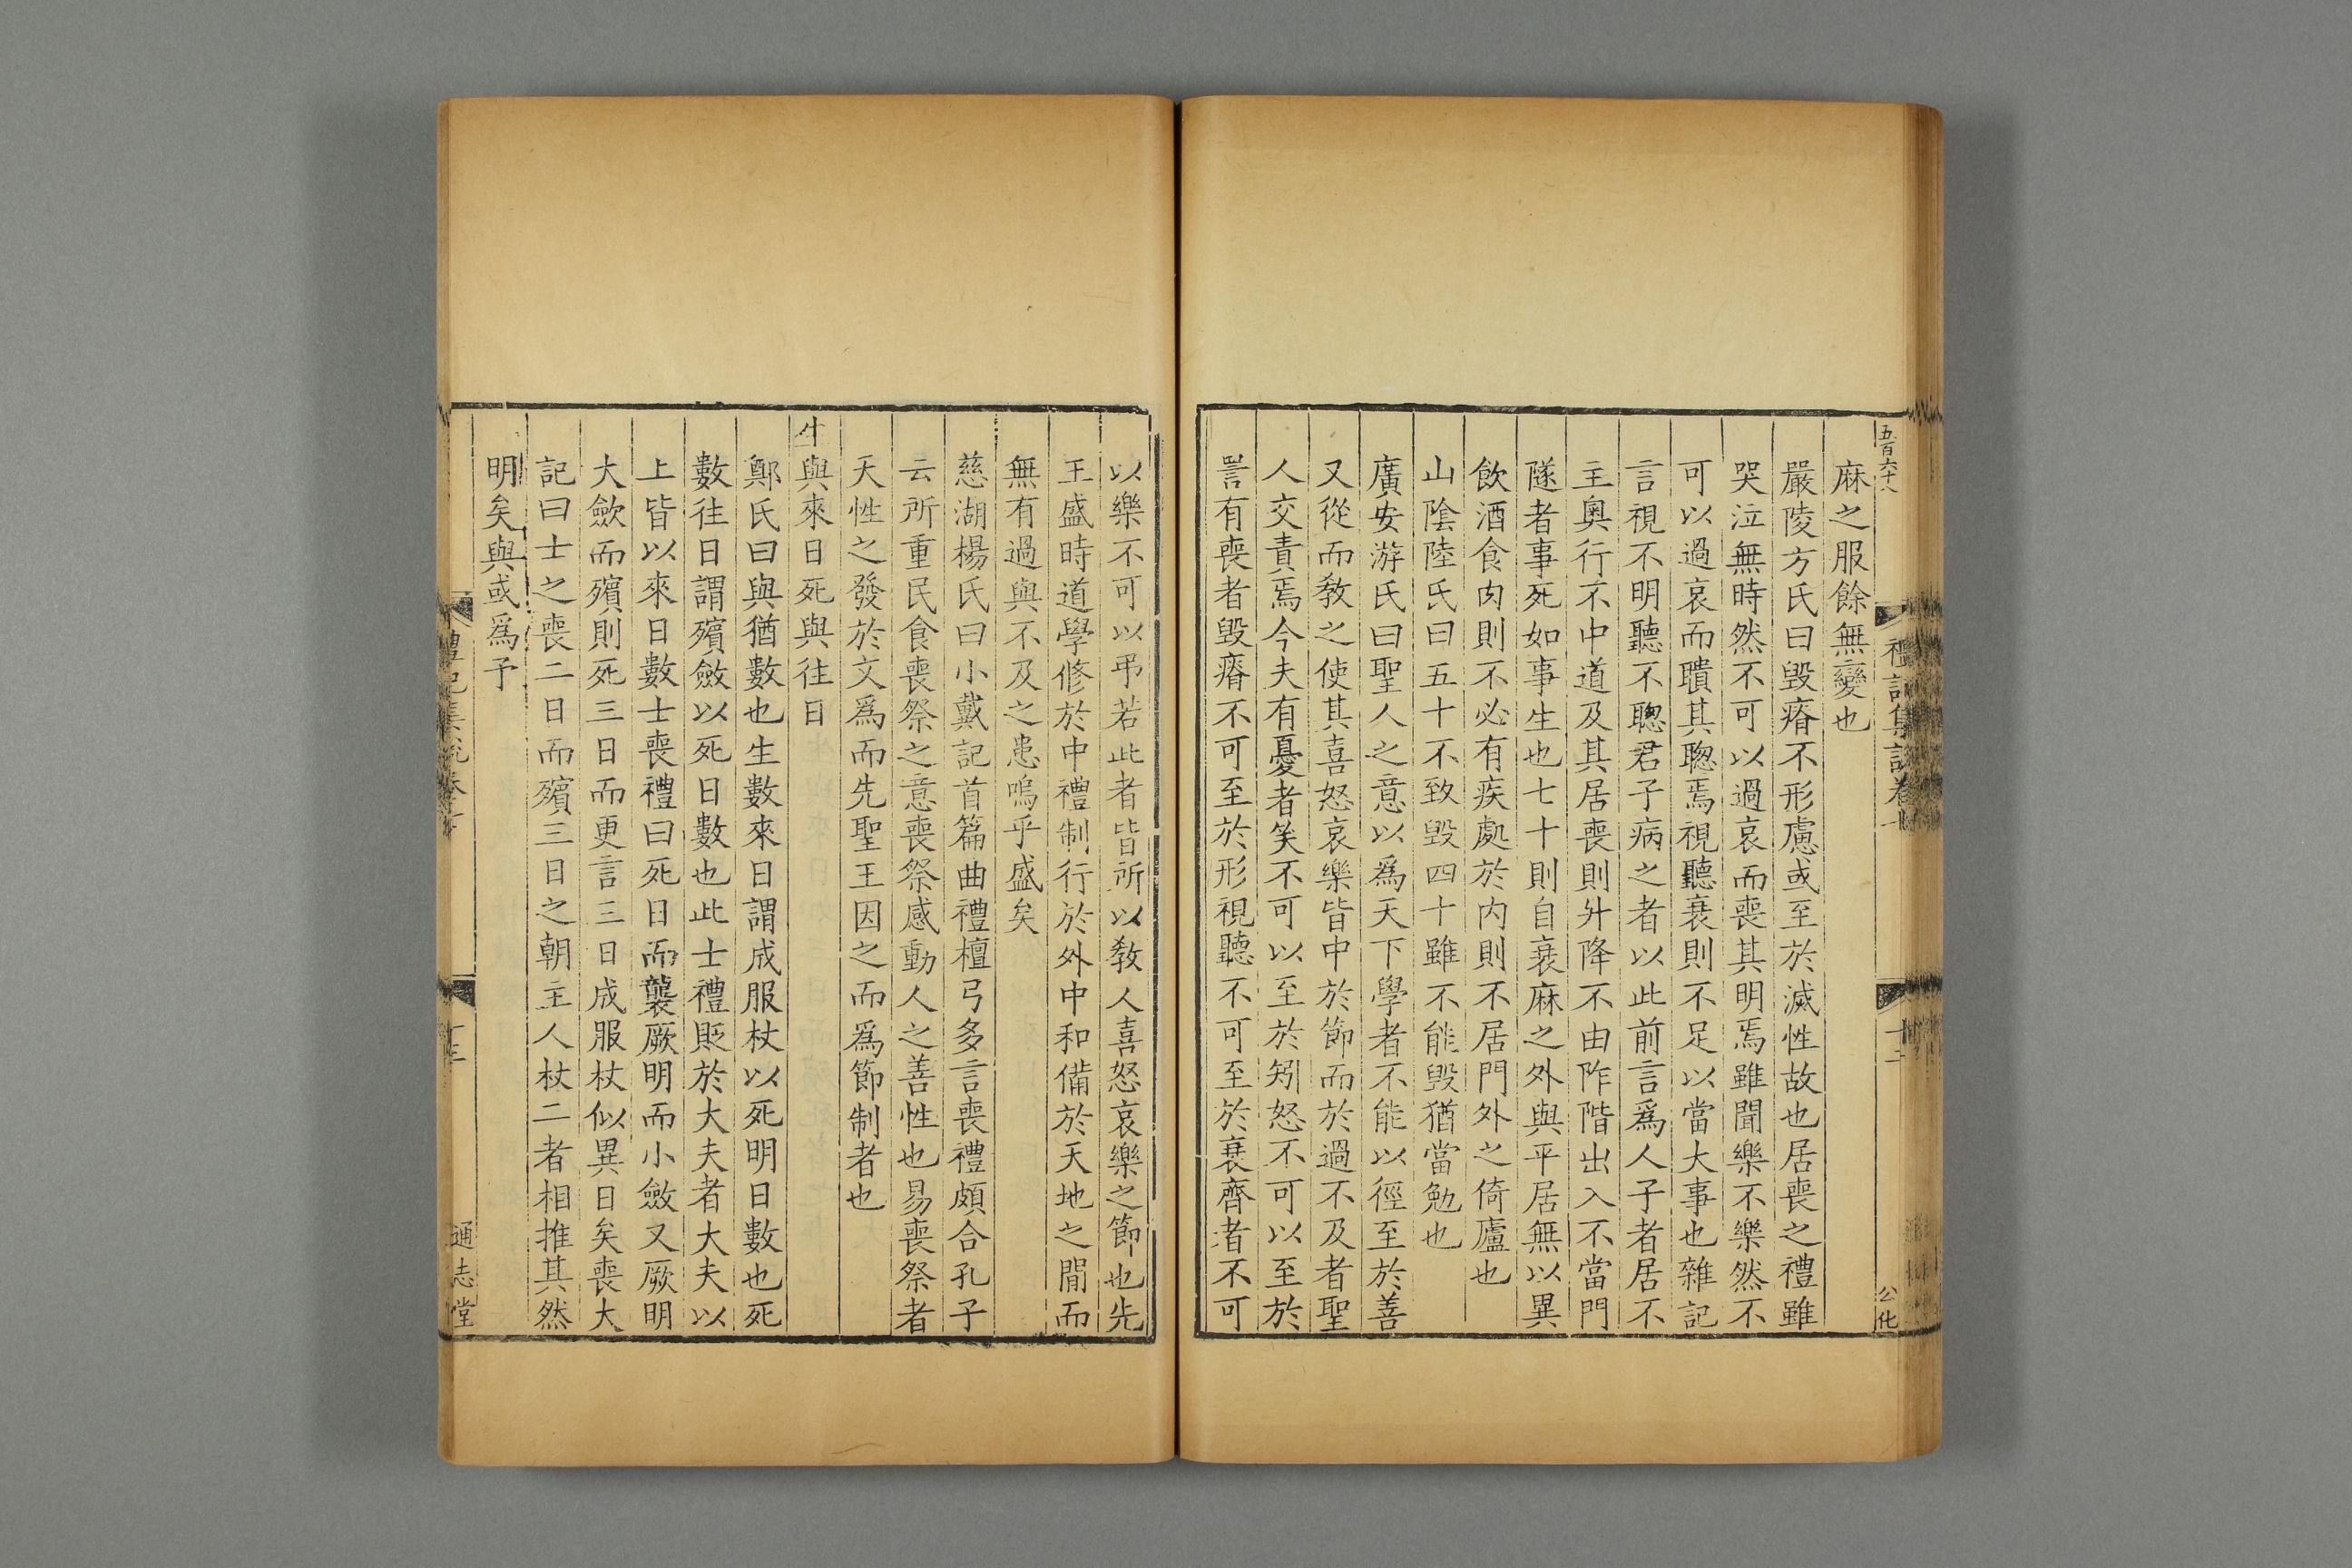 五百六十八
禮記集說卷
十二
公化
麻之服餘無變也
嚴陵方氏曰毀瘠不形慮或至於滅性故也居喪之禮雖
哭泣無時然不可以過哀而喪其明焉雖聞樂不樂然不
可以過哀而聵其聰焉視聽衰則不足以當大事也雜記
言視不明聽不聰君子病之者以此前言爲人子者居不
主奧行不中道及其居喪則升降不由阼階出入不當門
隧者事死如事生也七十則自衰麻之外與平居無以異
飲酒食肉則不必有疾處於內則不居門外之倚廬也
山陰陸氏曰五十不致毀四十雖不能毀猶當勉也
廣安游氏曰聖人之意以爲天下學者不能以徑至於善
又從而敎之使其喜怒哀樂皆中於節而於過不及者聖
人交責焉今夫有憂者笑不可以至於矧怒不可以至於
詈有喪者毀瘠不可至於形視聽不可至於衰齊者不可
以樂不可以弔若此者皆所以敎人喜怒哀樂之節也先
王盛時道學修於中禮制行於外中和備於天地之閒而
無有過與不及之患嗚乎盛矣
慈湖楊氏曰小戴記首篇曲禮檀弓多言喪禮頗合孔子
云所重民食喪祭之意喪祭感動人之善性也易喪祭者
天性之發於文爲而先聖王因之而爲節制者也
生與來日死與往日
鄭氏曰與猶數也生數來日謂成服杖以死明日數也死
數往日謂殯斂以死日數也此士禮貶於大夫者大夫以
上皆以來日數士喪禮曰死日而襲厥明而小斂又厥明
大斂而殯則死三日而更言三日成服杖似異日矣喪大
記曰士之喪二日而殯三日之朝主人杖二者相推其然
明矣與或爲予
禮記集說卷
十三
通志堂